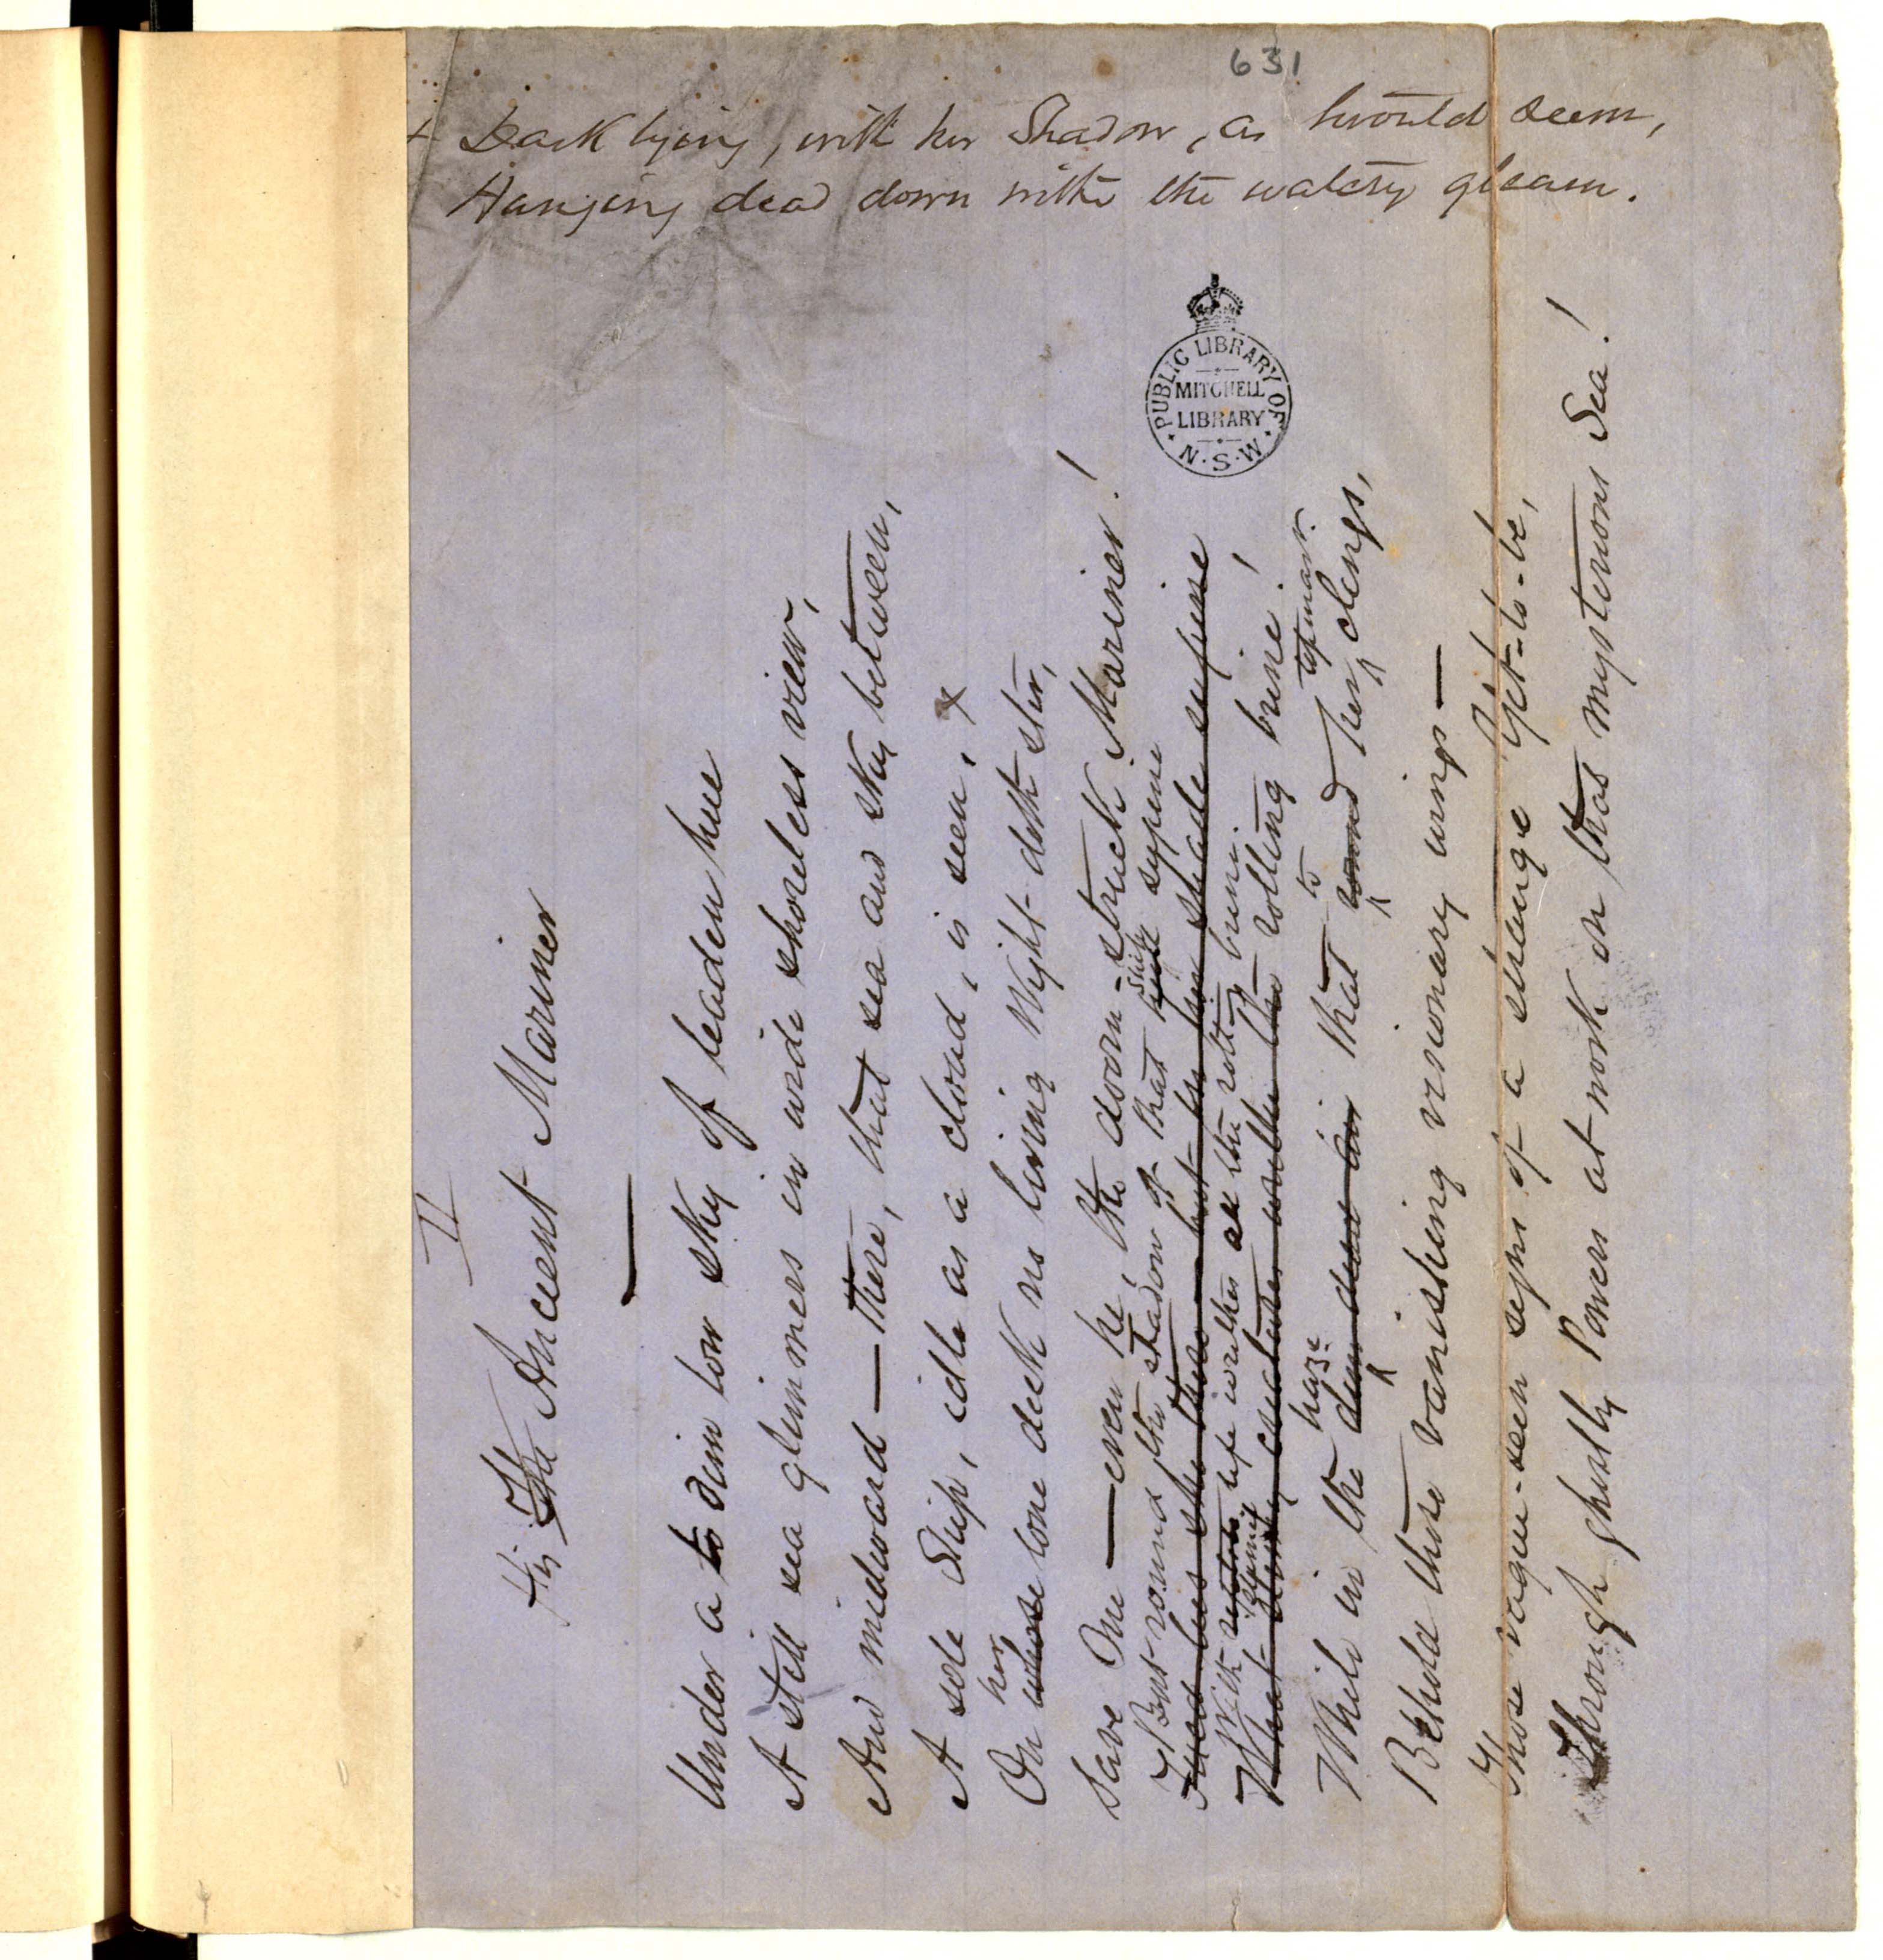 631
+ Dark lying, with her Shadow, as 'twould seem,
Hanging dead down with the watery gleam.
PUBLIC LIBRARY OF N·S·W
MITCHELL
LIBRARY
II
His The Ancient Mariner
Under a to dim low sky of leaden hue
A still sea glimmers in wide shoreless view,
And midward — there, that sea and sky between,
A sole Ship, idle as a cloud, is seen, x
her
On whose lone deck no living Wight doth stir,
Save One — even he, the doom-struck Mariner!
But round the shadow of that Ship supine
lies she there — but on her shade supine
With life writhes all the rotting brine.
What slimy the rotting brine!
haze to topmast
While in the that round her clings,
Behold those vanishing visionary wings —
Those vague-seen signs of a strange Yet-to-be,
Through ghastly Powers at work in that mysterious Sea!